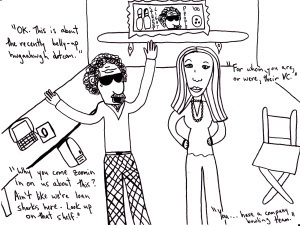 "OK. This is about
the recently belly-up
dotcom.
"For whom you are,
or were, their VC."
"Why you come zoomin
in on us about this?
Ain't like we're loan
sharks here. Look up
on that shelf."
have a company
bowling team."